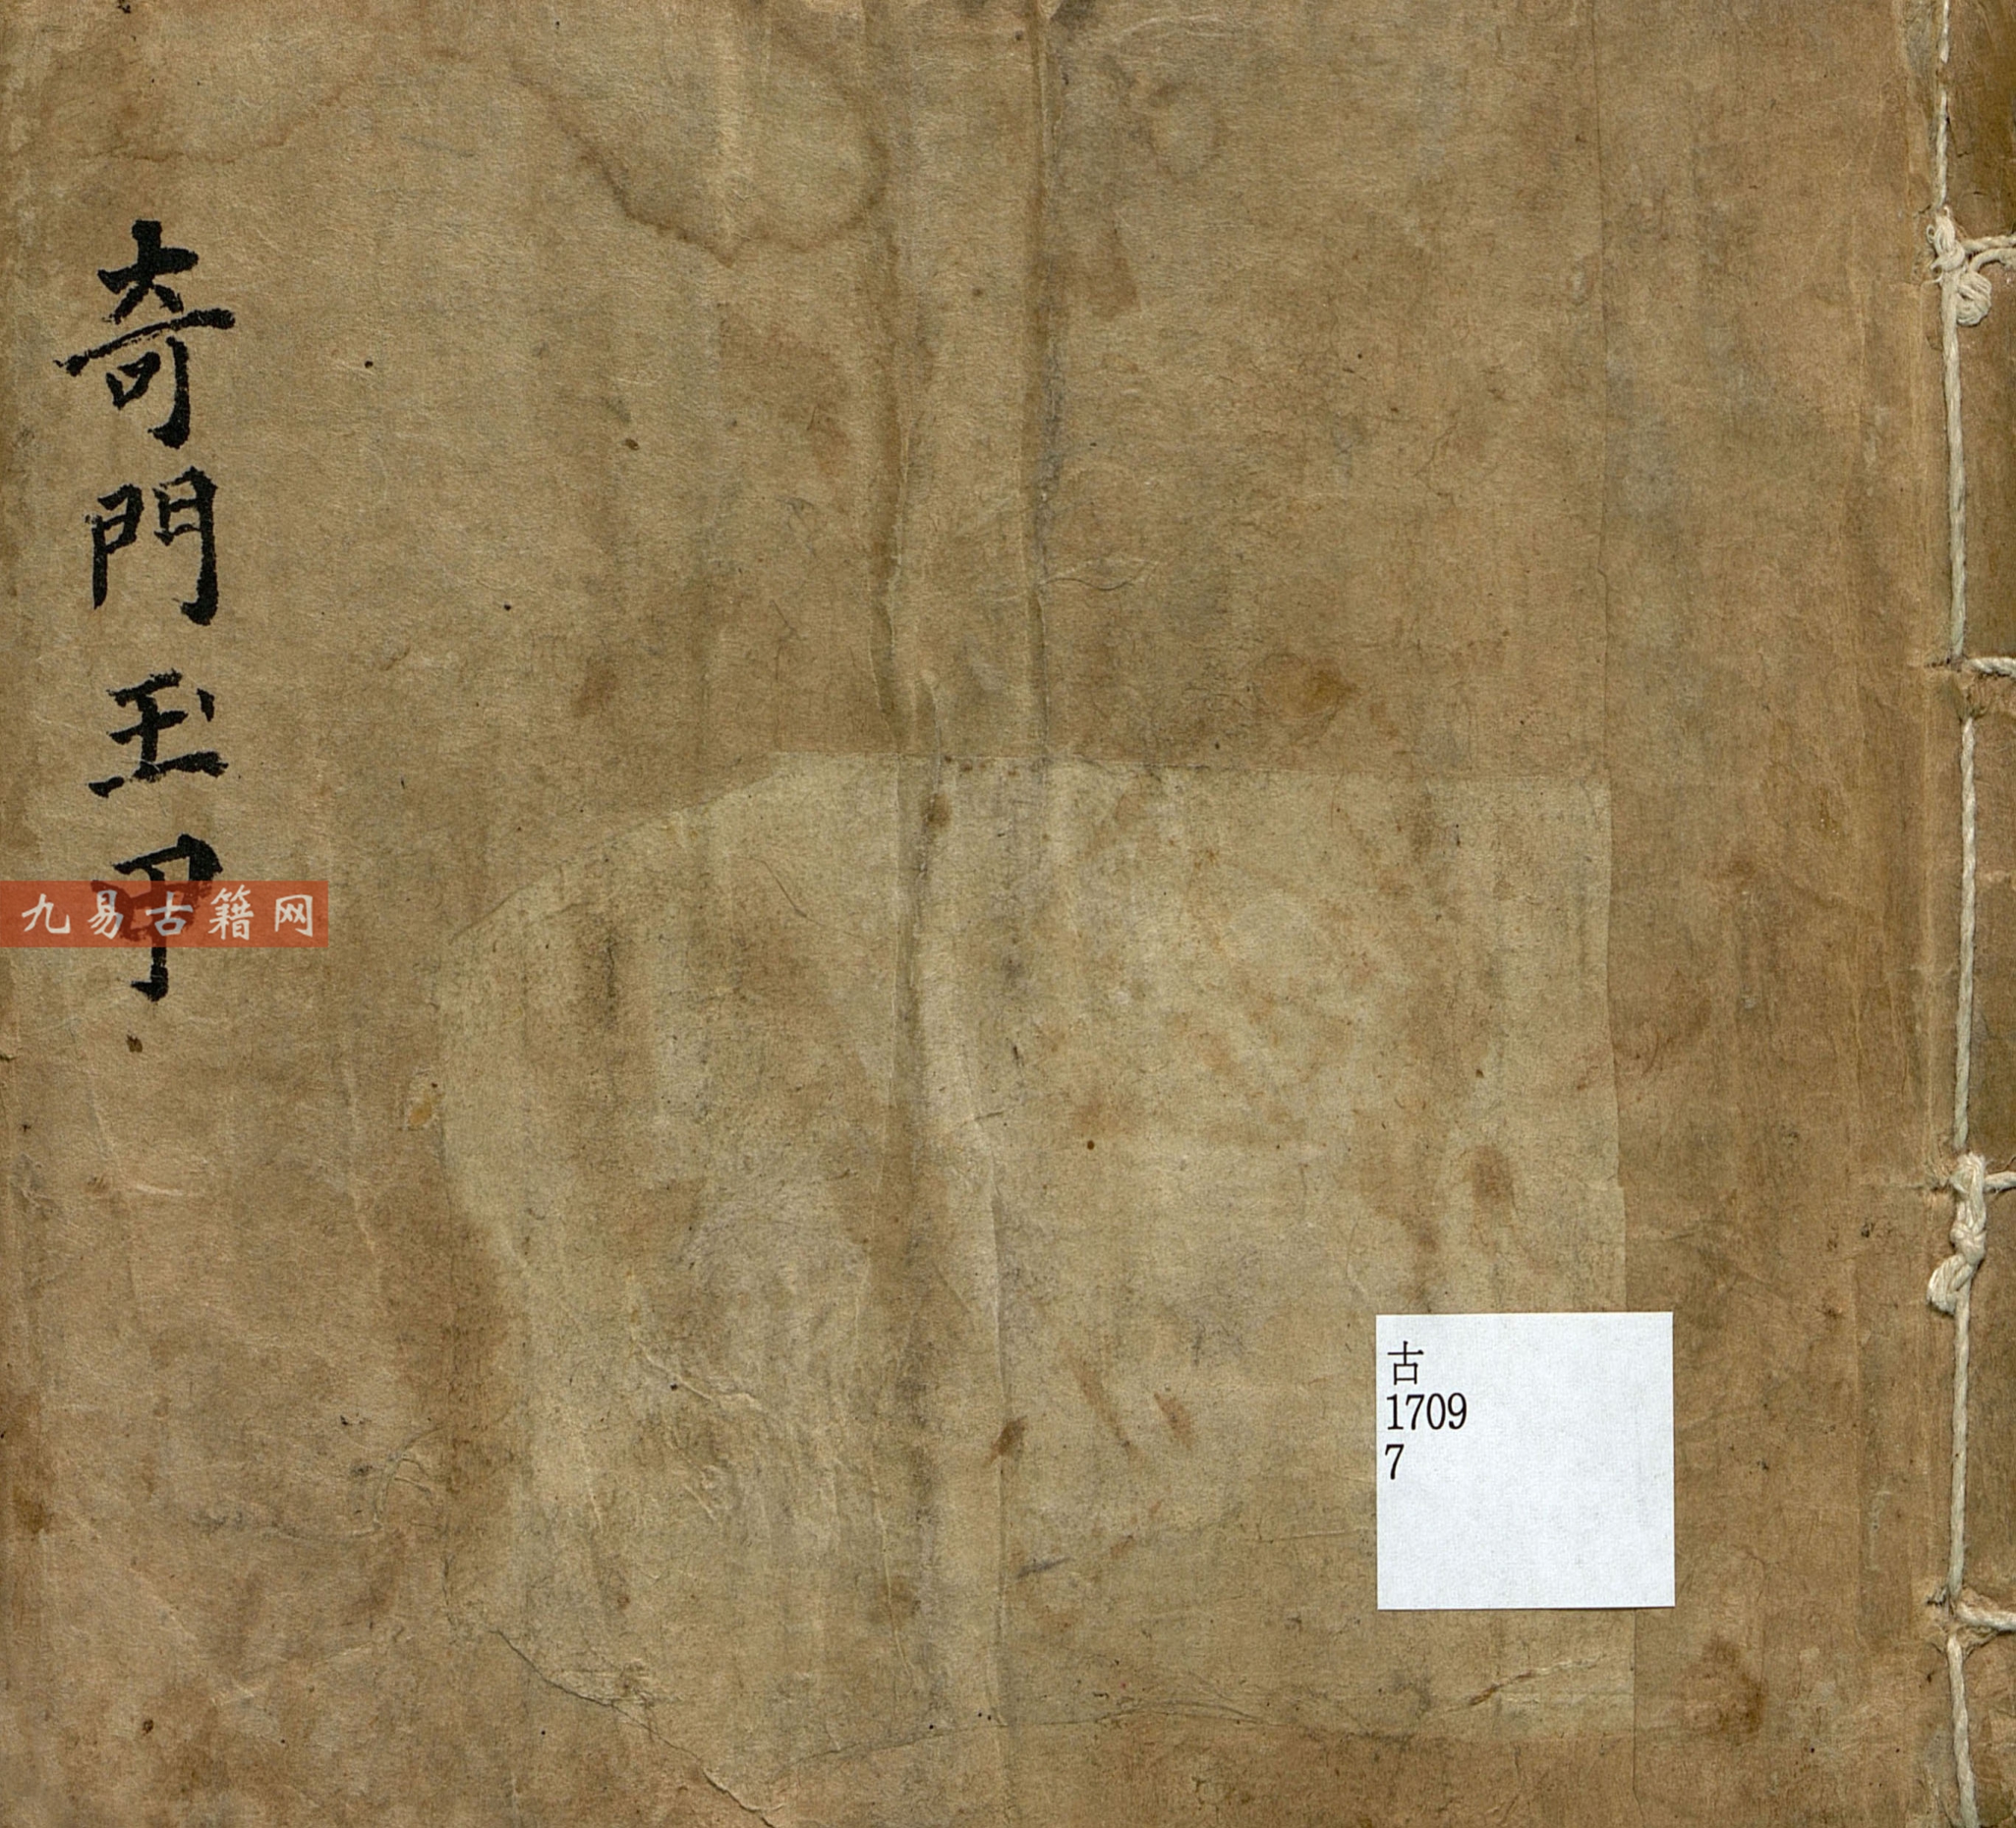 奇門玉甲
九易古籍网
古
1709
7